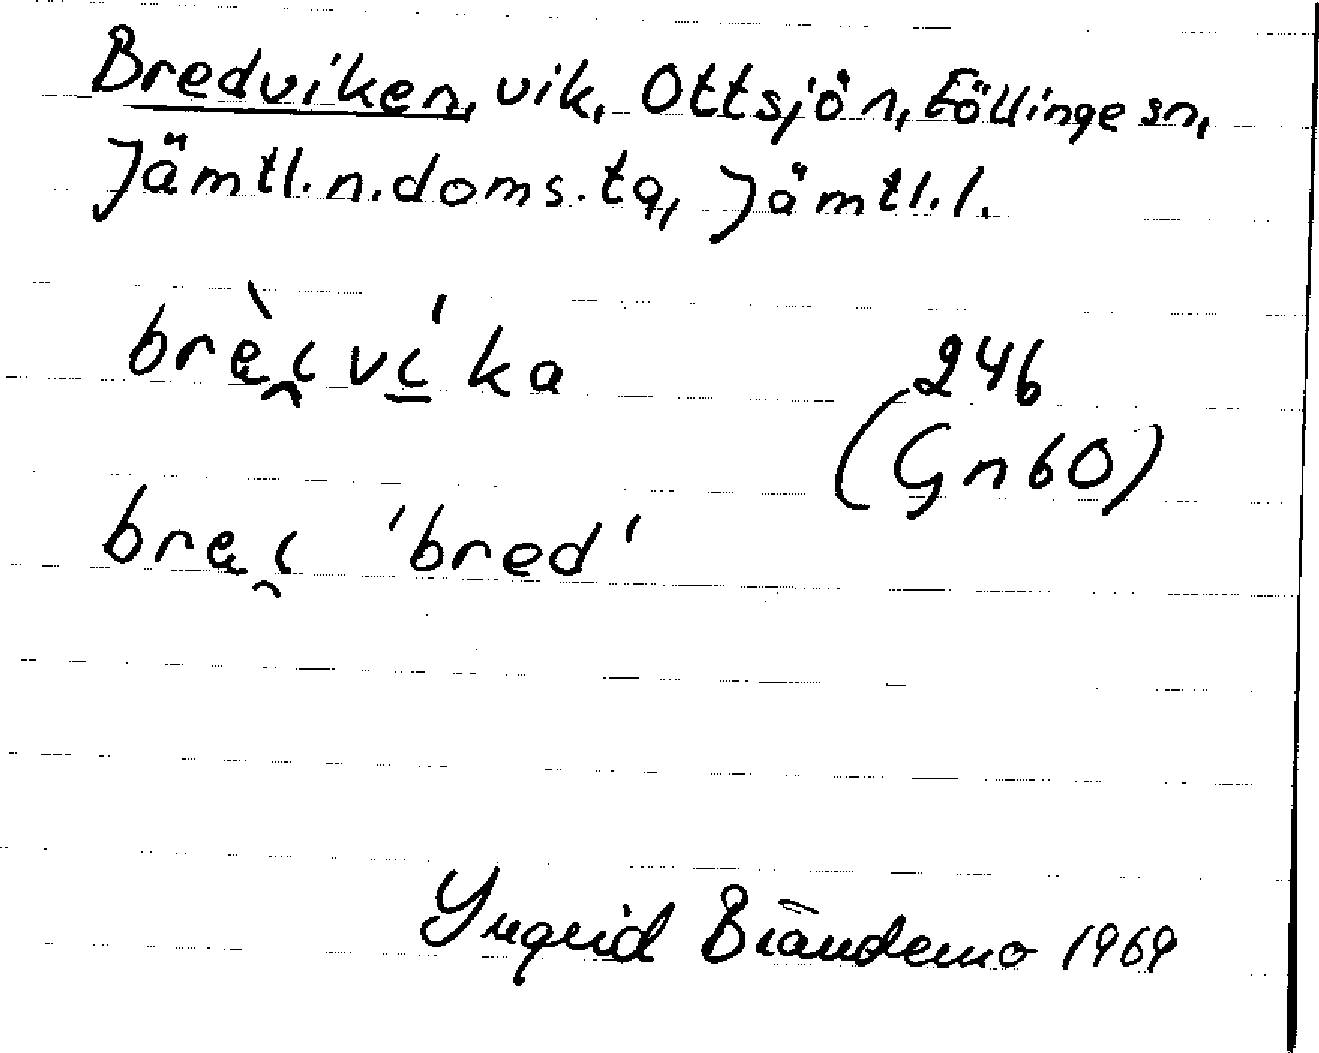 Bredviken, vik, Ottsjön, Föllinge sn,
Jämtl.n.doms.tg, Jämtl.l.
brèi̯ví̱ka 246
(Gn60)
brei̯ 'bred'
Yngrid Brändemo 1969